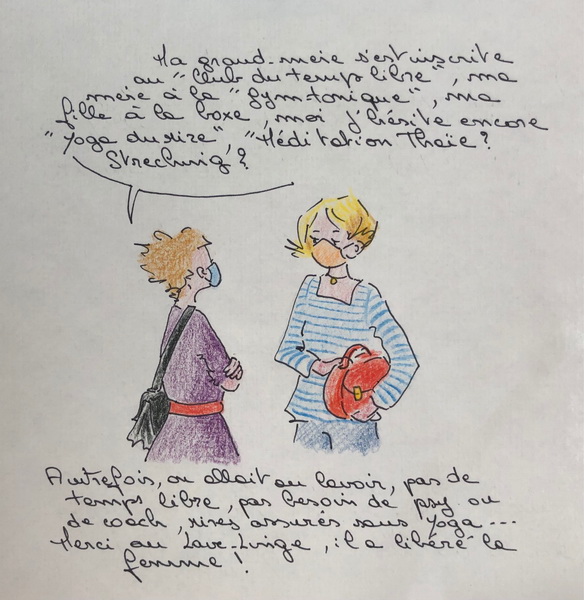 Ma grand-mère s'est inscrite
au "Club du temps libre", ma
mère à la "Gymtonique", ma
fille à la boxe, moi j'hésite encore
"Yoga du rire", "Méditation Thaïe?
Streching?
Autrefois, on allait au lavoir, pas de
temps libre, pas besoin de psy ou
de coach, rires assurés sans Yoga...
Merci au Lave-Linge, il a libéré la
femme!